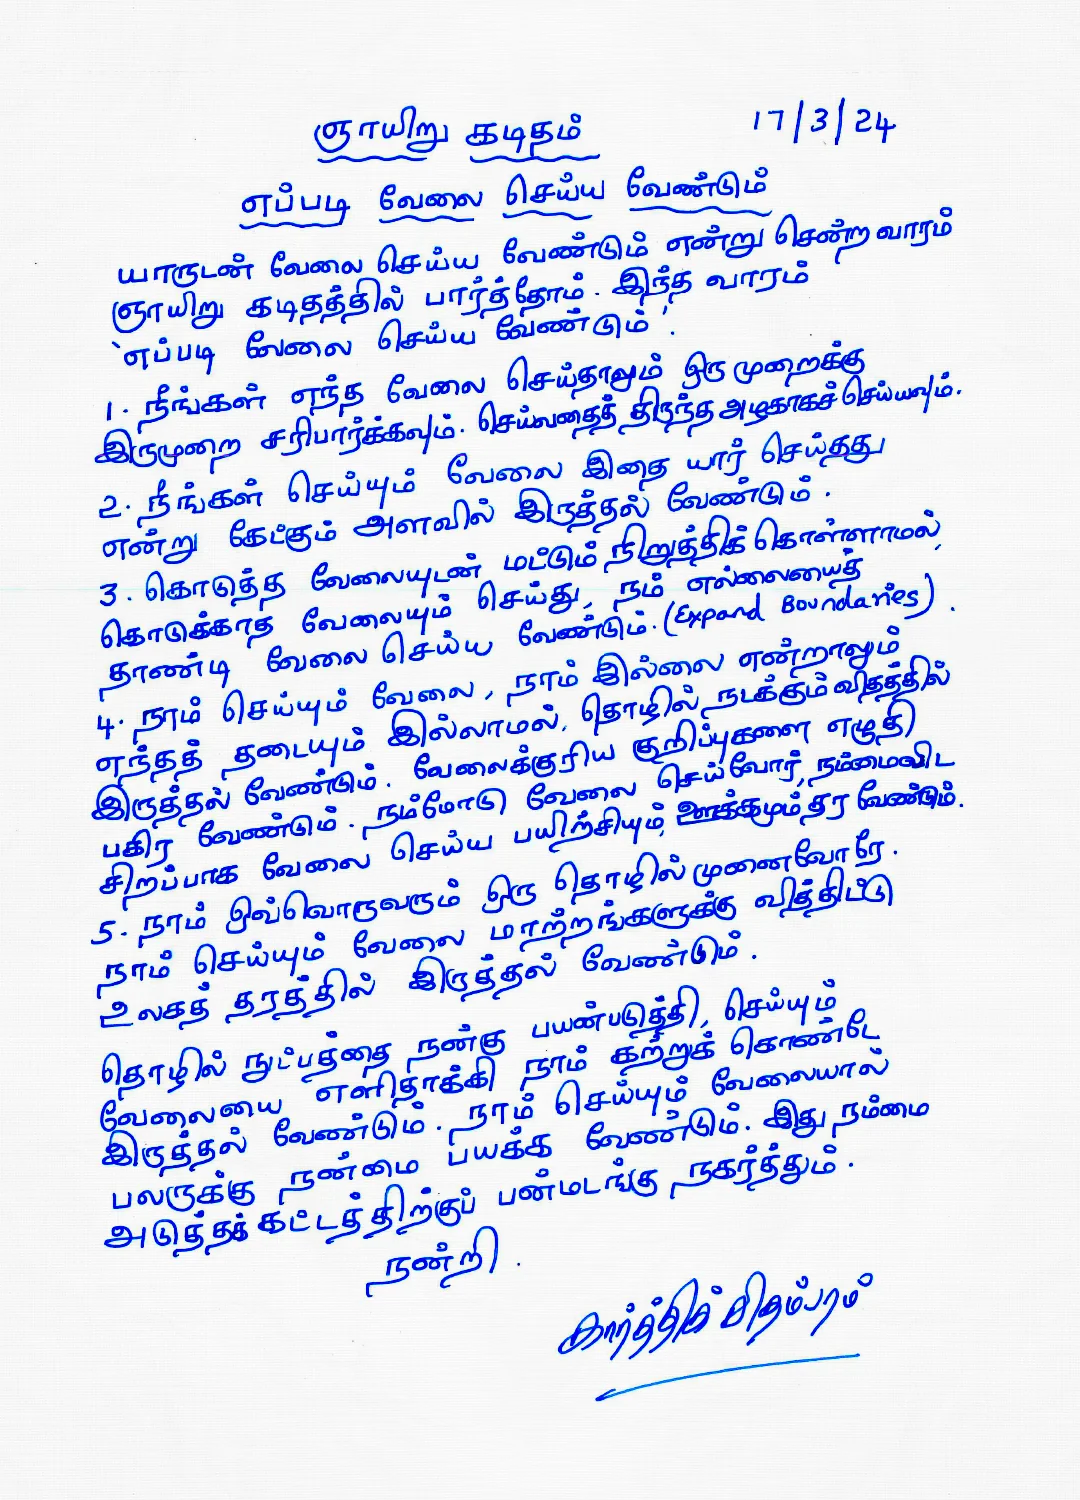 ஞாயிறு கடிதம் 17/3/24
எப்படி வேலை செய்ய வேண்டும்
யாருடன் வேலை செய்ய வேண்டும் என்று சென்ற வாரம்
ஞாயிறு கடிதத்தில் பார்த்தோம். இந்த வாரம்
'எப்படி வேலை செய்ய வேண்டும்'.
1. நீங்கள் எந்த வேலை செய்தாலும் ஒரு முறைக்கு
இருமுறை சரிபார்க்கவும். செய்வதைத் திருந்த அழகாகச் செய்யவும்.
2. நீங்கள் செய்யும் வேலை இதை யார் செய்தது
என்று கேட்கும் அளவில் இருத்தல் வேண்டும்.
3. கொடுத்த வேலையுடன் மட்டும் நிறுத்திக் கொள்ளாமல்,
கொடுக்காத வேலையும் செய்து, நம் எல்லையைத்
தாண்டி வேலை செய்ய வேண்டும். (Expand Boundaries).
4. நாம் செய்யும் வேலை, நாம் இல்லை என்றாலும்
எந்தத் தடையும் இல்லாமல், தொழில் நடக்கும் விதத்தில்
இருத்தல் வேண்டும். வேலைக்குரிய குறிப்புகளை எழுதி
பகிர வேண்டும். நம்மோடு வேலை செய்வோர், நம்மைவிட
சிறப்பாக வேலை செய்ய பயிற்சியும், ஊக்கமும் தர வேண்டும்.
5. நாம் ஒவ்வொருவரும் ஒரு தொழில் முனைவோரே.
நாம் செய்யும் வேலை மாற்றங்களுக்கு வித்திட்டு
உலகத் தரத்தில் இருத்தல் வேண்டும்.
தொழில் நுட்பத்தை நன்கு பயன்படுத்தி, செய்யும்
வேலையை எளிதாக்கி நாம் கற்றுக் கொண்டே
இருத்தல் வேண்டும். நாம் செய்யும் வேலையால்
பலருக்கு நன்மை பயக்க வேண்டும். இது நம்மை
அடுத்தக் கட்டத்திற்குப் பன்மடங்கு நகர்த்தும்.
நன்றி.
கார்த்திக் சிதம்பரம்